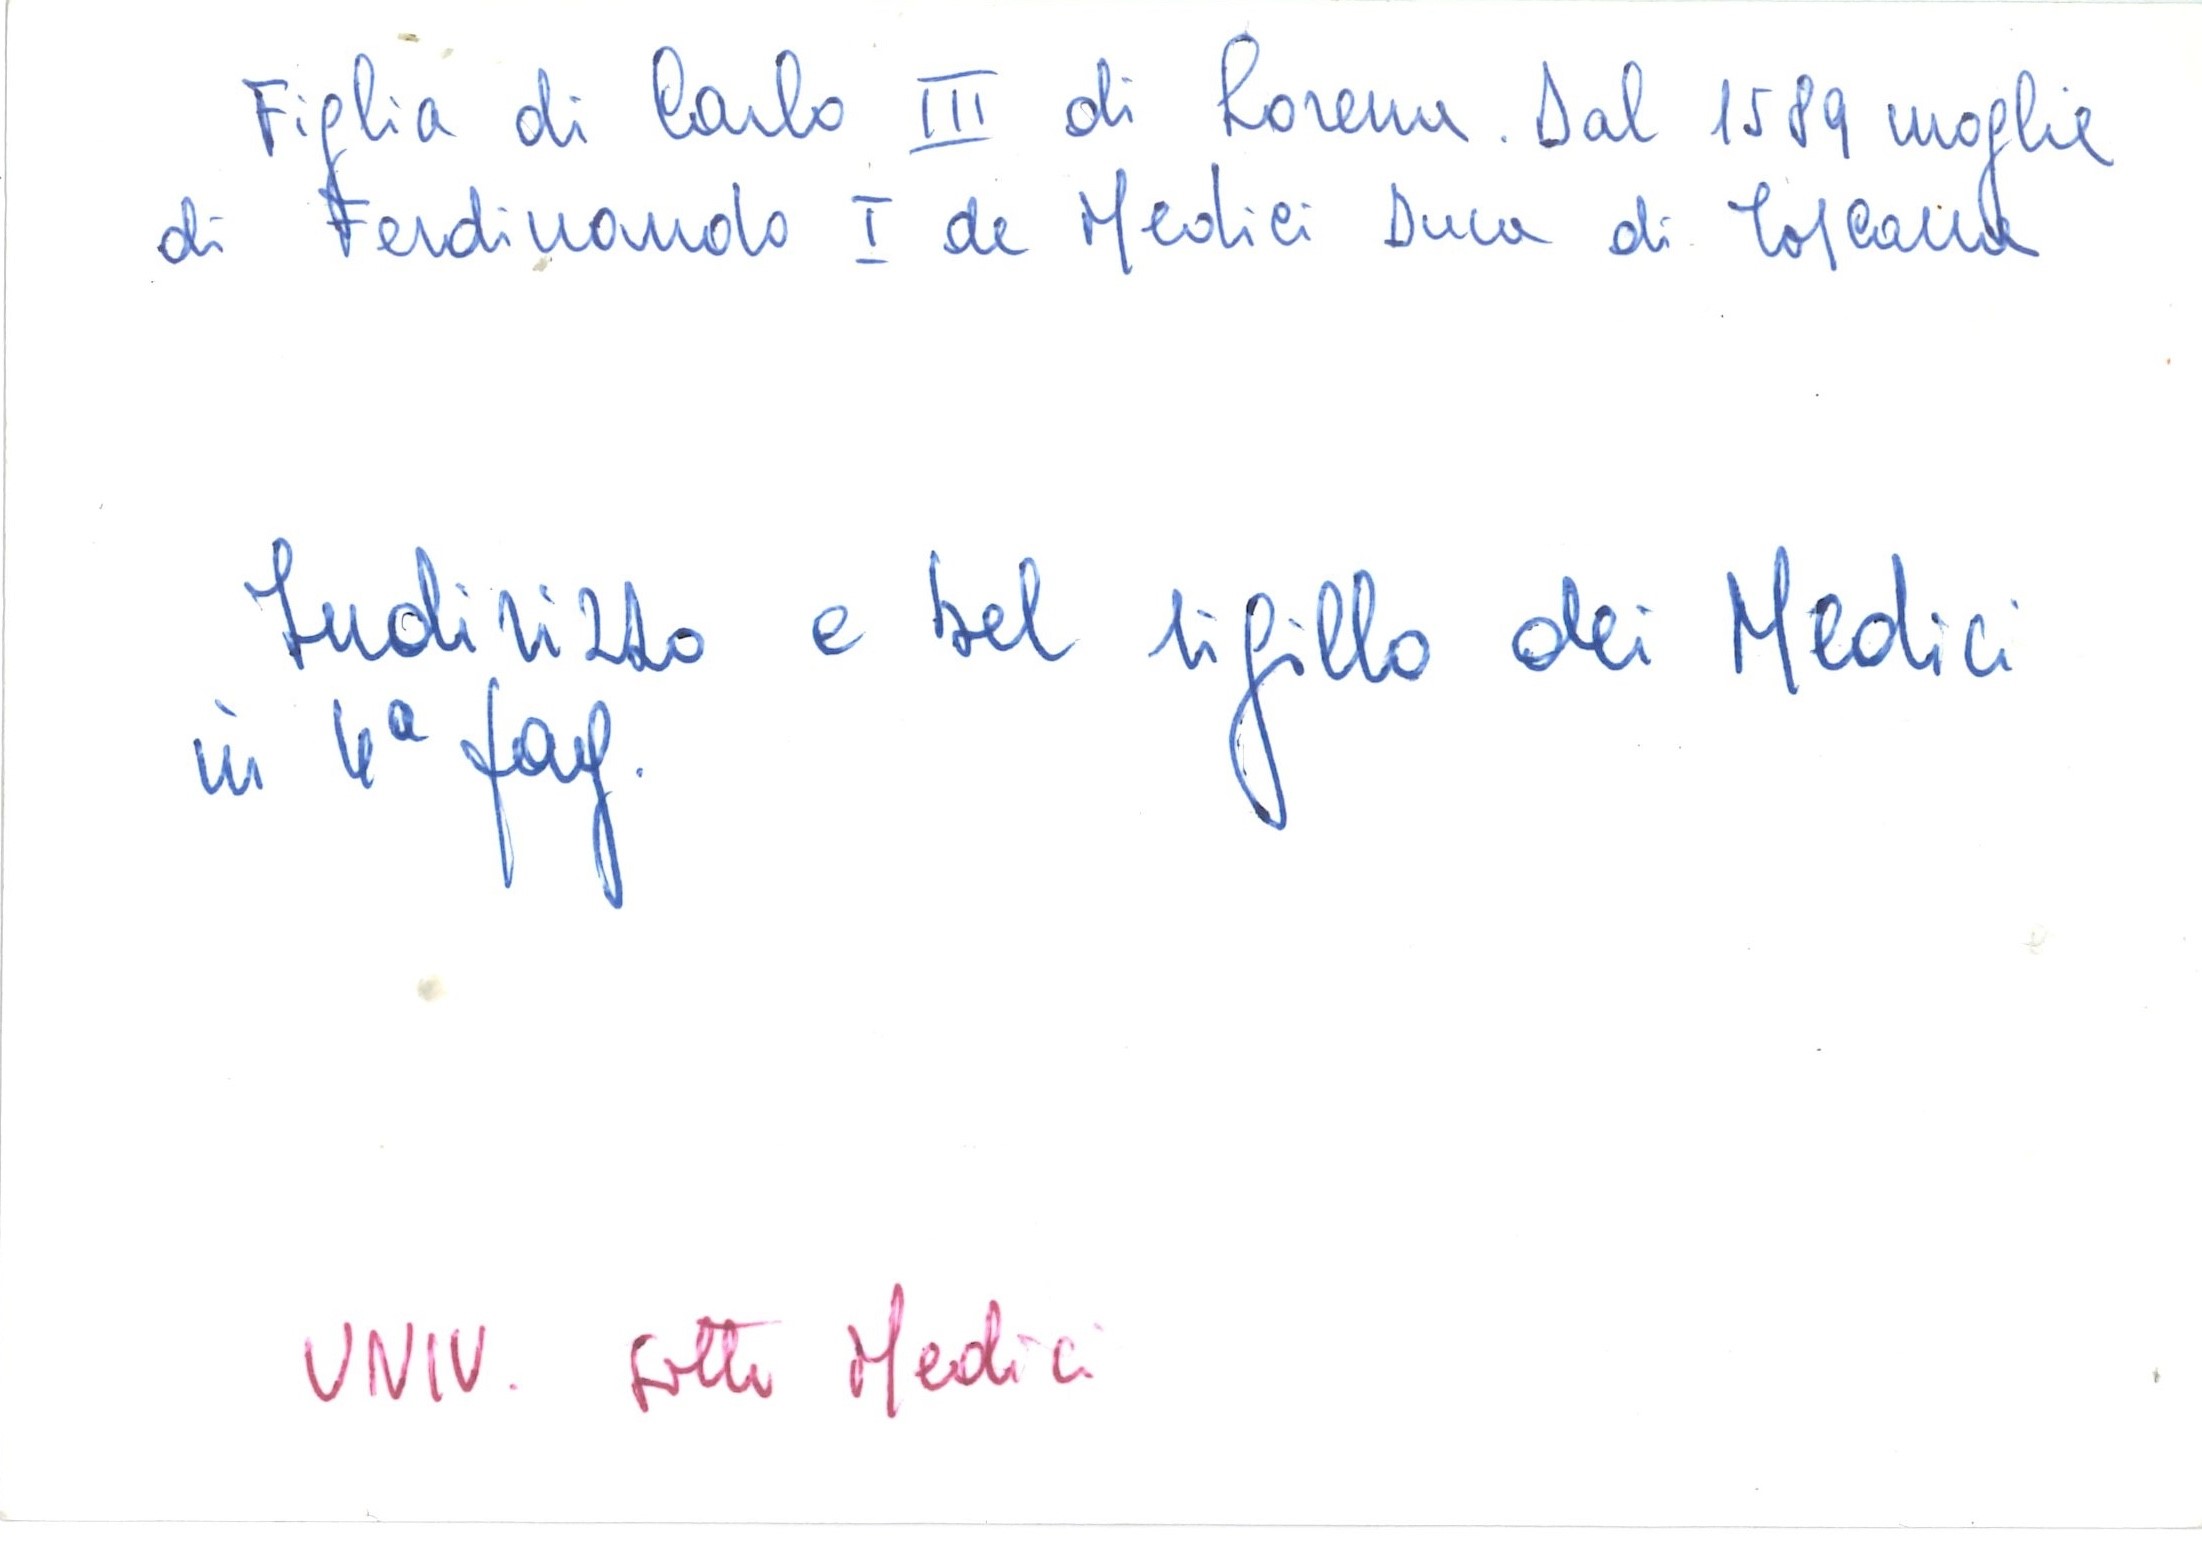 Figlia di Carlo III di Lorena. Dal 1589 moglie
di Ferdinando I de Medici Duca di Toscana
Indirizzo e bel sigillo dei Medici
in 4ª pag.
UNIV. sotto Medici